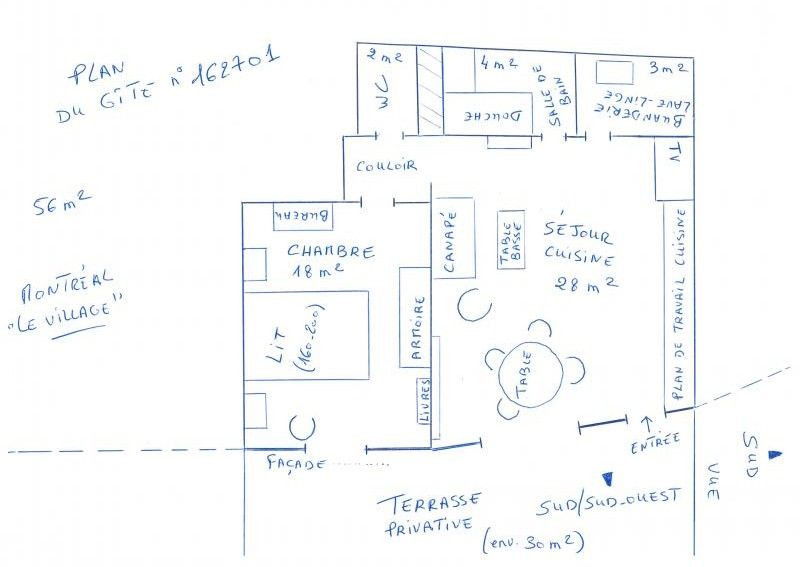 PLAN
DU GÎTE n° 162701
56 m²
MONTRÉAL
"LE VILLAGE"
2 m²
WC
4 m²
DOUCHE
SALLE DE
BAIN
3 m²
BUANDERIE
LAVE-LINGE
TV
COULOIR
BUREAU
CHAMBRE
18 m²
CANAPÉ
TABLE
BASSE
SÉJOUR
CUISINE
28 m²
PLAN DE TRAVAIL CUISINE
LIT
(160-200)
ARMOIRE
LIVRES
TABLE
ENTRÉE
FAÇADE
TERRASSE
PRIVATIVE
(env. 30 m²)
SUD/SUD-OUEST
VUE
SUD